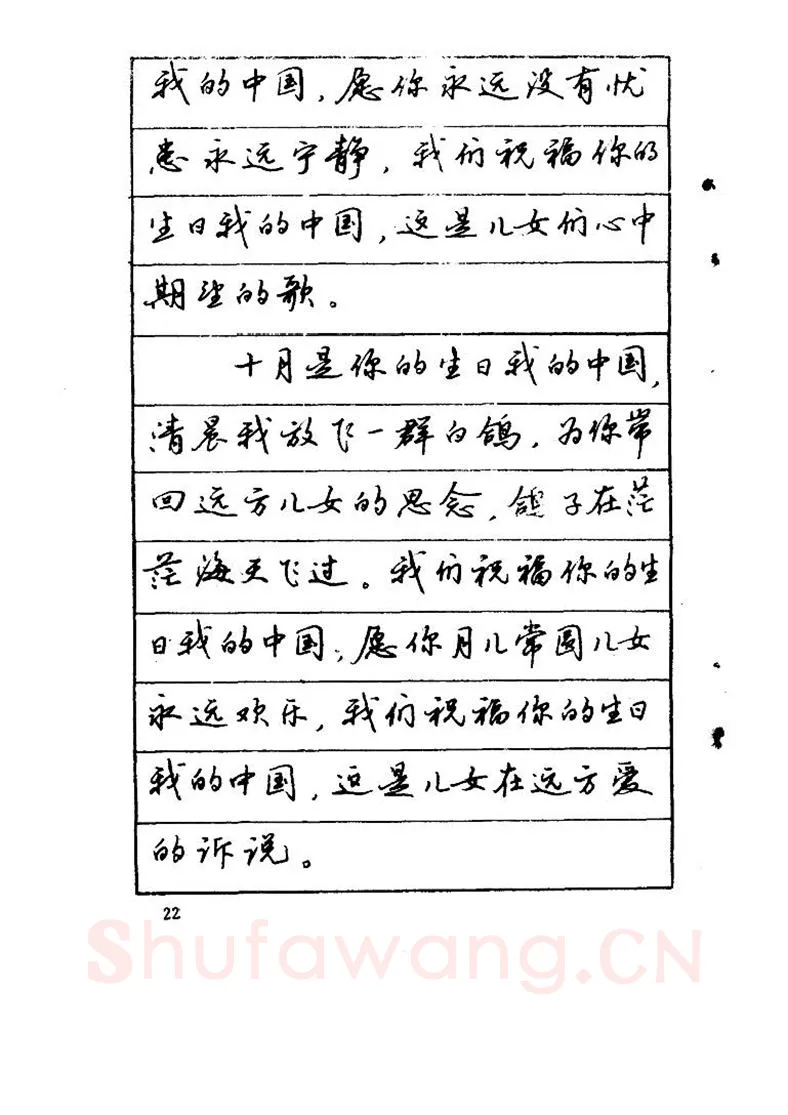 我的中国，愿你永远没有忧
患永远宁静，我们祝福你的
生日我的中国，这是儿女们心中
期望的歌。
十月是你的生日我的中国，
清晨我放飞一群白鸽，为你带
回远方儿女的思念，鸽子在茫
茫海天飞过。我们祝福你的生
日我的中国，愿你月儿常圆儿女
永远欢乐，我们祝福你的生日
我的中国，这是儿女在远方爱
的诉说。
22
Shufawang.CN